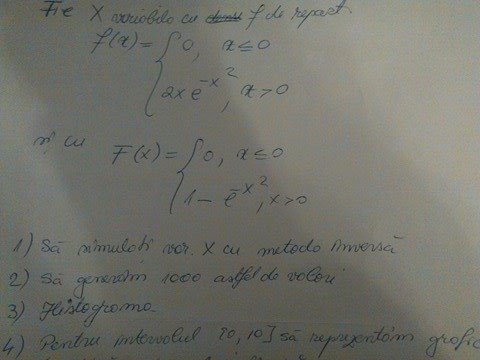 Fie X variabila cu f de repart.
f(x) = { 0, x ≤ 0
2x e^{-x^2}, x > 0
și cu
F(x) = { 0, x ≤ 0
1 - e^{-x^2}, x > 0
1) Să simulați var. X cu metoda inversă
2) Să generăm 1000 astfel de valori
3) Histograma
4) Pentru intervalul [0, 10] să reprezentăm grafic